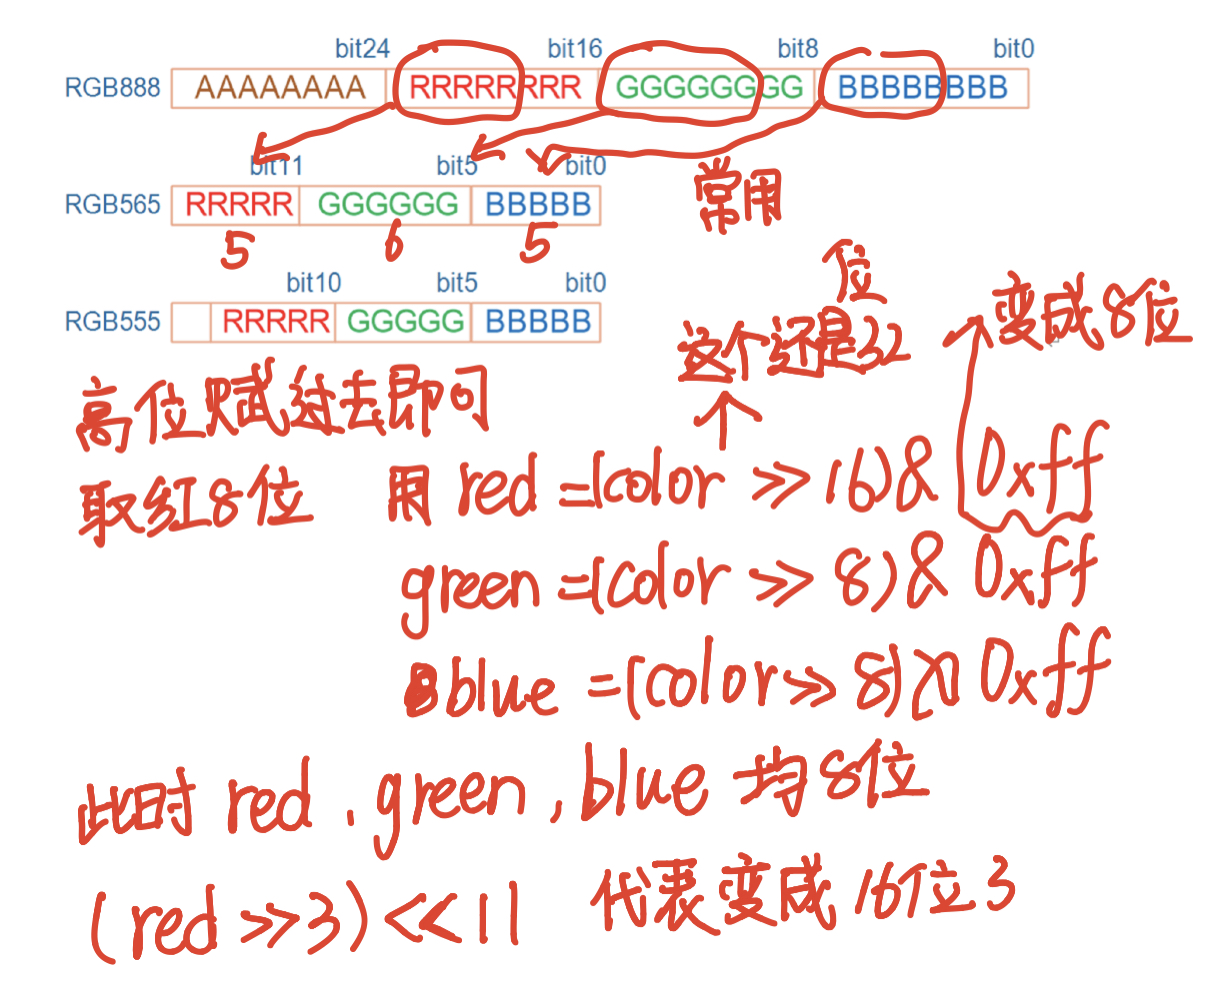 bit24 bit16 bit8 bit0
RGB888 AAAAAAAA RRRRRRRR GGGGGGGG BBBBBBBB
bit11 bit5 bit0
RGB565 RRRRR GGGGGG BBBBB 常用
5 6 5
bit10 bit5 bit0
RGB555 RRRRR GGGGG BBBBB
位
这个还是32
变成8位
高位赋过去即可
取红8位 用 red =(color >> 16)& 0xff
green =(color >> 8)& 0xff
blue =(color>> 8)& 0xff
此时 red . green , blue 均8位
(red >>3)<<11 代表变成16位3